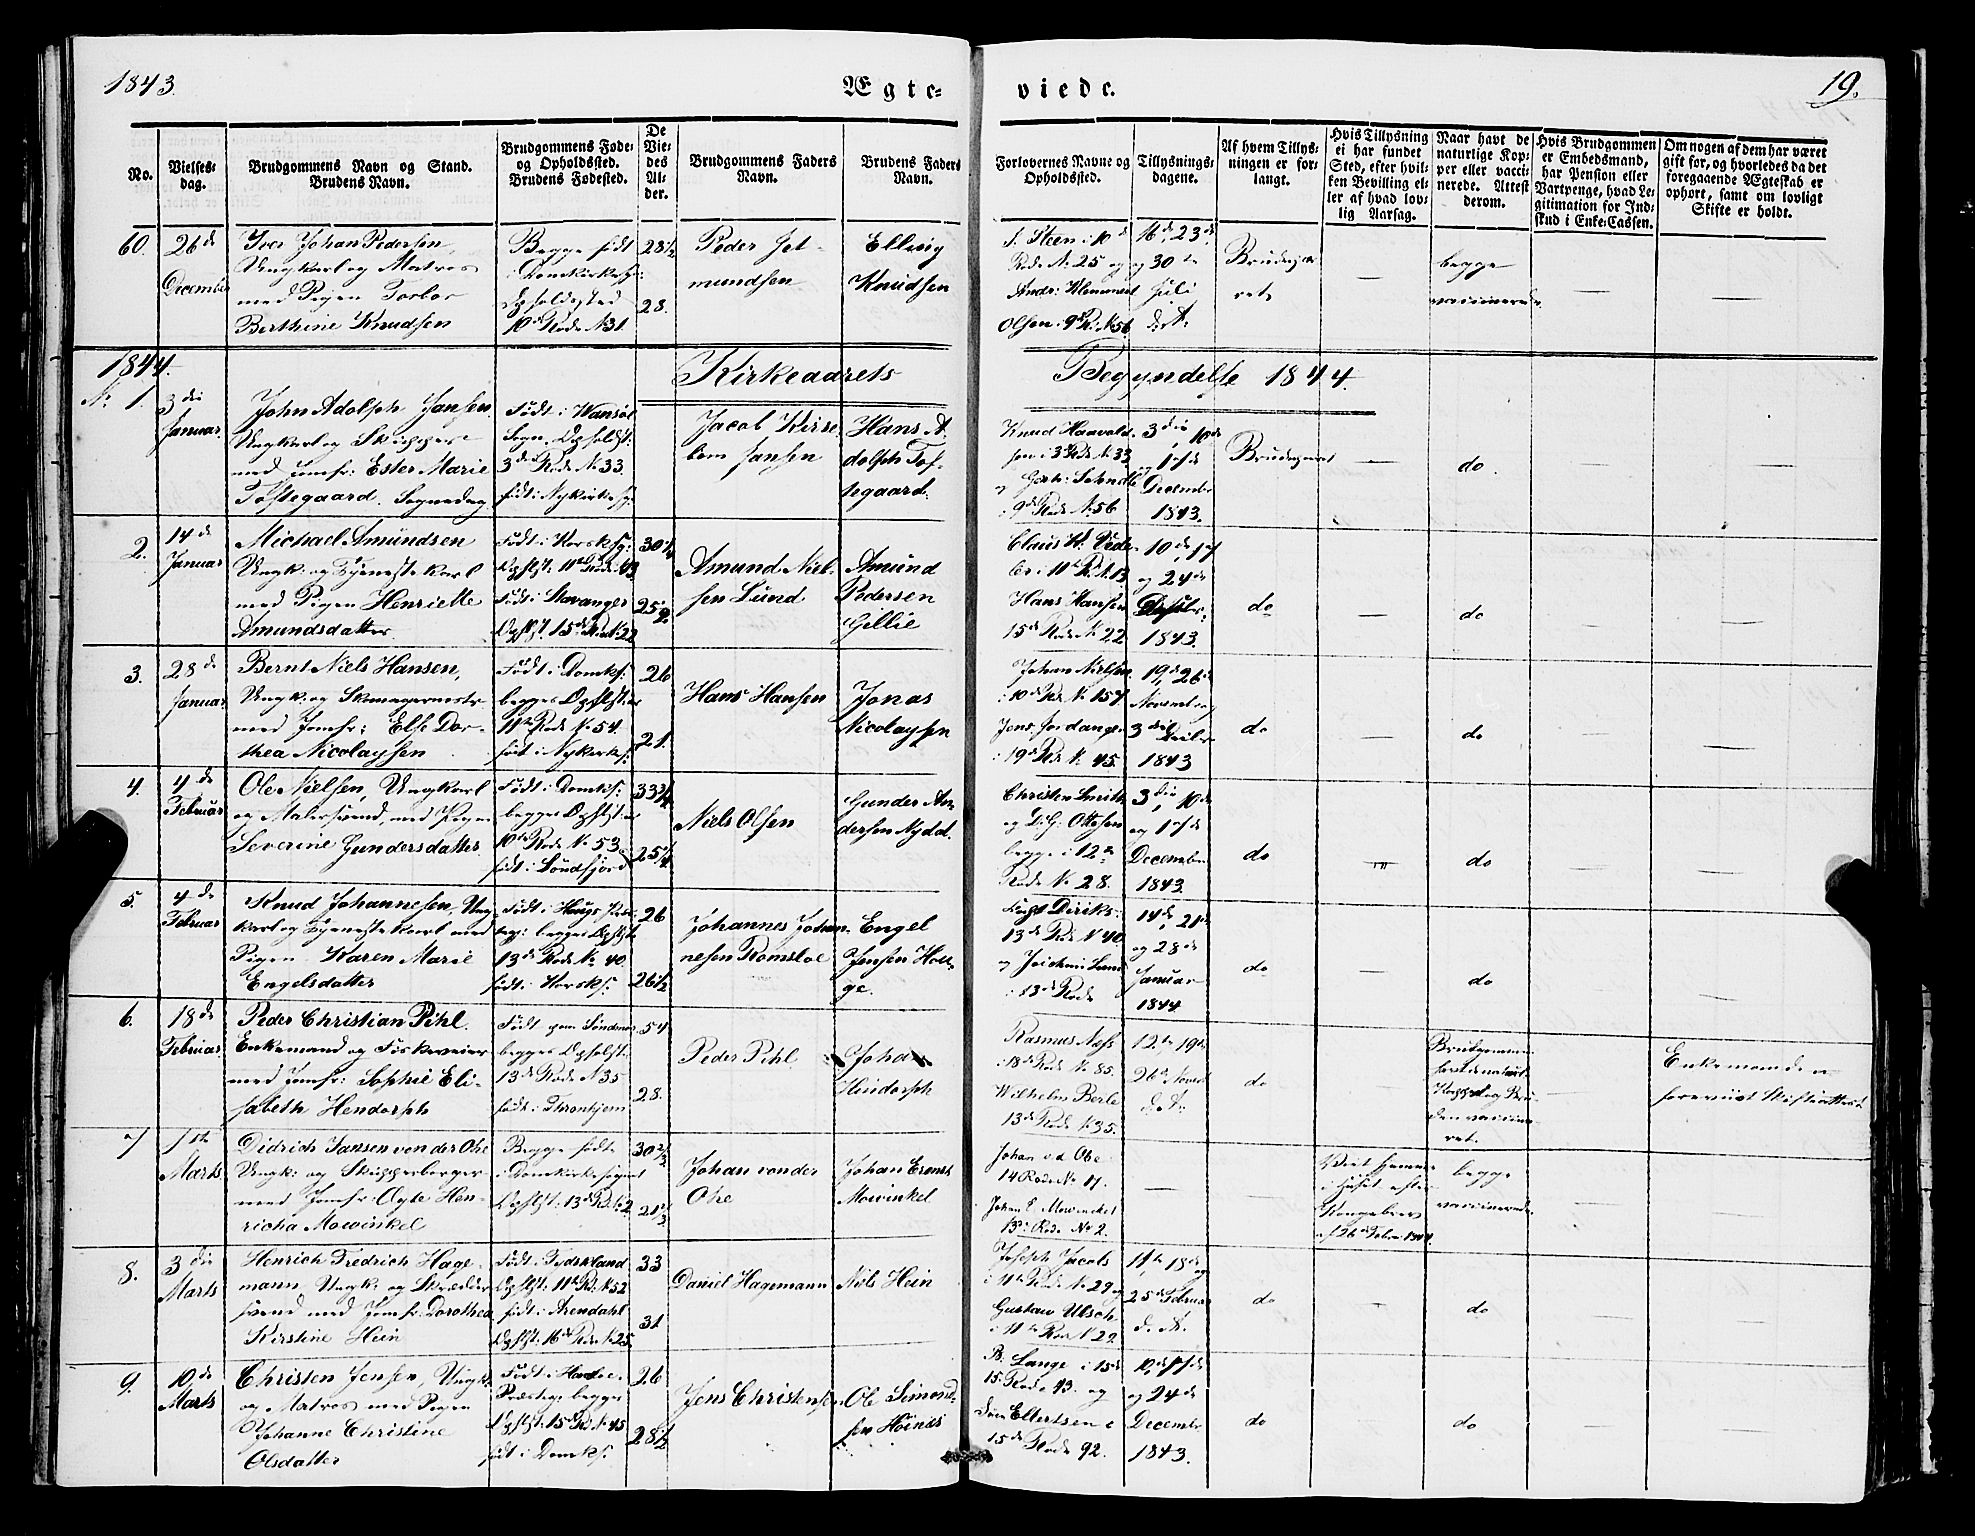 1843.
Ægte-
viede.
19.
No.
Vielses-
dag.
Brudgommens Navn og Stand.
Brudens Navn.
Brudgommens Føde-
og Opholdssted.
Brudens Fødested.
De
Vie-
des
Al-
der.
Brudgommens Faders
Navn.
Brudens Faders
Navn.
Forlovernes Navne og
Opholdssted.
Tillysnings-
dagene.
Af hvem Tillys-
ningen er for-
langt.
Hvis Tillysning
ei har fundet
Sted, efter hvil-
ken Bevilling el-
ler af hvad lov-
lig Aarsag.
Naar havt de
naturlige Kop-
per eller vacci-
nerede. Attest
derom.
Hvis Brudgommen
er Embedsmand,
har Pension eller
Vartpenge, hvad Le-
gitimation for Ind-
skud i Enke-Cassen.
Om nogen af dem har været
gift før, og hvorledes da det
foregaaende Ægteskab er
ophørt, samt om lovligt
Skifte er holdt.
60.
26de
December
Iver Johan Pedersen,
Ungkarl og Matros
med Pigen Torbor
Berthine Knudsen
Begge født
i Domkirkesg:
Opholdssted
10de Rode No 31.
28 1/2
28.
Peder Jet-
mundsen
Elling
Knudsen
S. Steen i 10de
Rode No 25 og
Andr: Klement
Olsen i 9de R: No 56
16de, 23de,
og 30te
Juli
d. A.
Brudepar-
ret
begge
vaccinerede
1844.
Kirkeaarets
Begyndelse 1844.
No 1.
3die
Januar
John Adolph Jansen
Ungkarl og Skipper
med Jomfr: Ester Marie
Tostegaard. Sognedag
Født i Wansøe
Sogn, Opholdst:
3die Rode No 33
født i Nykirkesg:
Jacob Kirse-
bom Jansen
Hans A-
dolph Tos-
tegaard.
Knud Haavold-
sen i 3die Rode No 33
9de Rode No 56
3die, 10de
og 17de
December
1843.
Brudeparret
do.
2.
14de
Januar
Michael Amundsen
Ungk: og Tjenestekarl
med Pigen Henriette
Amundsdatter
Født i Korsksg:
Opholdst: 11te Rode 43
født i Stavanger
Opholdst. 15de Rode No 22
30 1/4
25 1/2
Amund Niel-
sen Lund
Amund
Pedersen
Gillie
Hans Hansen
15de Rode No 22
10de, 17
og 24de
1843.
do
do
3.
28de
Januar
Bernt Niels Hansen,
Ungk: og Skomagermester
med Jomfr: Else Dor-
thea Nicolaysen
Født i Domks:
begges Opholdsted
11te Rode No 54.
født i Nykirkes:
26
21.
Hans Hansen
Jonas
Nicolaysen
Johan Nielsen
i 10de Rode No 157
Jens Jordanger
i 19de Rode No 45.
19de, 26de
November og
3die Decbr
1843
do
do
4.
4de
Februar
Ole Nielsen, Ungkarl
og Malersvend, med Pigen
Severine Gundersdatter
Født i Domks:
begges Opholdsted
10de Rode No 53
født i Søndfjord
33 3/4
25 1/4
Niels Olsen
Gunder An-
dersen Nydal.
Christen Smith
og D: G: Ottesen
begge i 12te
Rode No 28.
3die, 10de
og 17de
December
1843.
do
do
5.
4de
Februar
Knud Johannesen, Ung-
karl og Tjenestekarl med
Pigen Karen Marie
Engelsdatter
13de Rode No 40.
født i Korsks:
26
26 1/2
Johannes Johan-
nesen Romsloe
Engel
Jensen Hau-
ge.
13de Rode No 40.
i 13de Rode
14de, 21de
og 28de
Januar
1844.
do
do
6.
18de
Februar
Peder Christian Pihl.
Enkemand og Fiskeveier
med Jomfr: Sophie Eli-
sabeth Hendorph
Født paa Søndmør
begges Opholdst:
13de Rode No 35
født i Thronhjem
54
28.
Peder Pihl
Johan
Hindorph
Rasmus Næss
i 18de Rode No 85.
Wilhelm Berle
13de Rode No 35.
12te, 19de
26de Novbr
d. A.
do
Brudgommen
Enkemanden
foreviist Skifteattest
7
1ste
Marts
Didrich Jansen von der Ohe
Ungk: og Skipperborger
med Jomfr: Ogte Hen-
richa Mowinkel
Begge fødte
i Domkirkesognet
Opholdst: 13de Rode No 2
30 2/3
21 1/3
Johan von der
Ohe
Johan Ernst
Mowinkel
Johan v. d. Ohe
14 Rode No 17.
Johan E. Mowinckel
13de Rode No 2.
Viet hjemme
i Huset efter
Kongebrev
af 26de Febr: 1844.
begge
vaccinerede
8.
3die
Marts
Henrich Fredrich Hage-
mann, Ungk: og Skrædder
svend med Jomfr. Dorothea
Kirstine Hein
Født i Tydskland
Opholdst: 11te R: No 52
født i Arendahl
Opholdst: 16de Rode No 25
33
31
Daniel Hagemann
Niels Hein
Joseph Jacobs
i 11te Rode No 29 og
Gustav Ulsch
i 11te Rode No 29
11te, 18de og
25de Februar
d. A.
do
do
9.
10de
Marts
Christen Jensen, Ungk:
og Matros med Pigen
Johanne Christine
Olsdatter
Præsteg. begges
Opholdst: 15de R: No 45
født i Domks:
26
28 1/2
Jens Christensen
Ole Simond-
sen Høinæs
B. Lange i 15de
15. Rode 93. og
Ellertsen i
15de Rode 92.
10de, 17de
og 24de
December
1843.
do
do